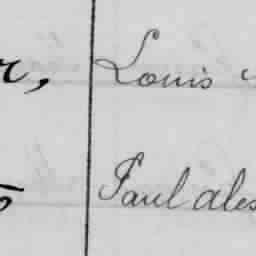 r, Louis
Paul ales